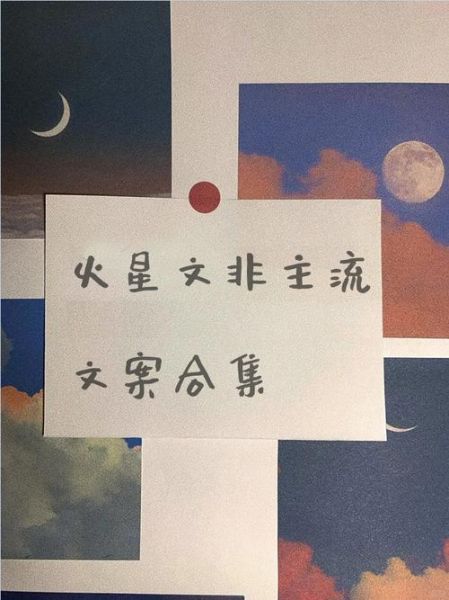 火星文非主流
文案合集